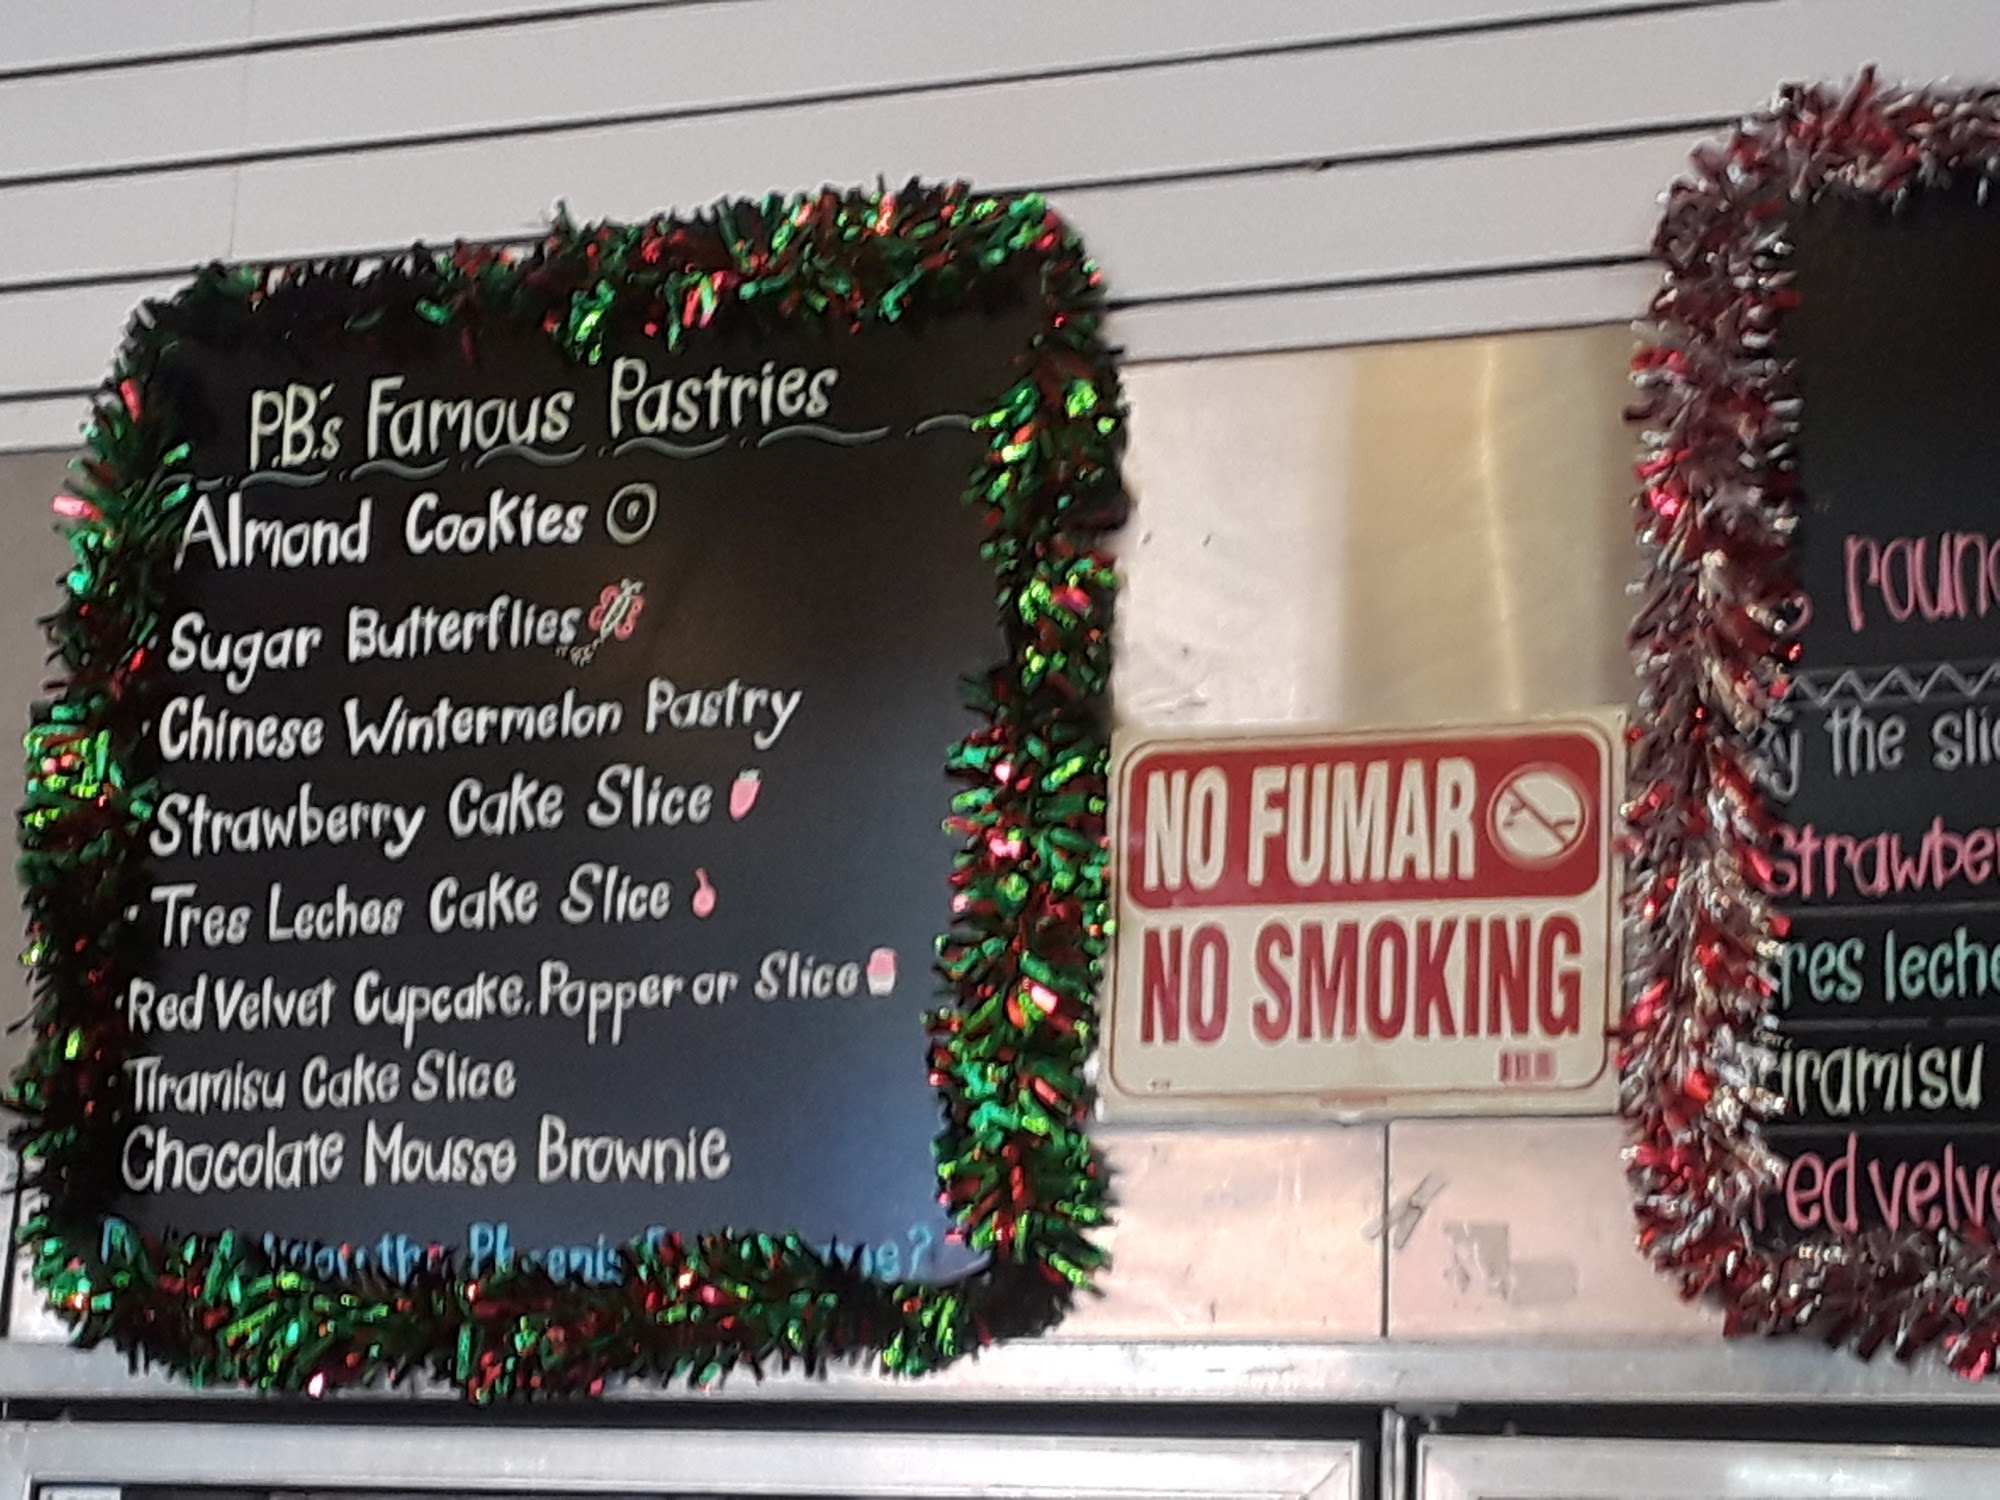 P.B.'s Famous Pastries
Almond Cookies
· Sugar Butterflies
· Chinese Wintermelon Pastry
Strawberry Cake Slice
· Tres Leches Cake Slice
· Red Velvet Cupcake, Popper or Slice
· Tiramisu Cake Slice
Chocolate Mousse Brownie
NO FUMAR
NO SMOKING
roun
y the slic
Strawber
res leche
iramisu
ed velve